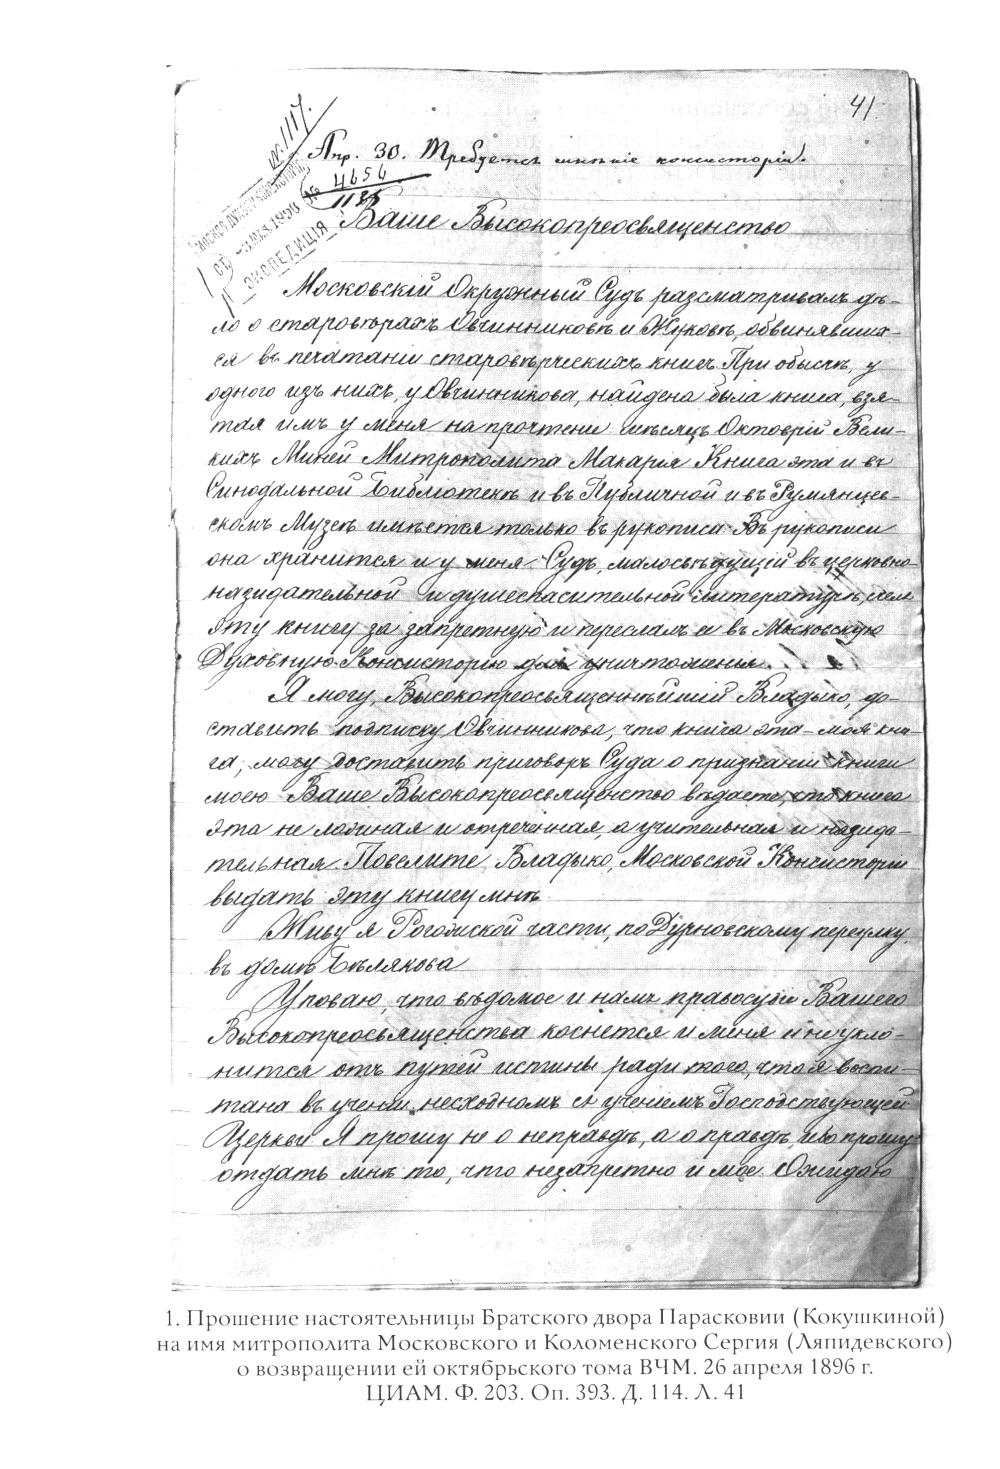 41
№ 1117.
Апр. 30. Требуется мнѣніе консисторіи.
№ 4656
ЭКСПЕДИЦІЯ
Ваше Высокопреосвященство
Московскій Окружный Судъ разсматривалъ дѣ-
ло о старовѣрахъ Овчинниковѣ и Жуковѣ, обвинявших-
ся въ печатаніи старовѣрческихъ книгъ. При обыскѣ, у
одного изъ нихъ, у Овчинникова, найдена была книга, взя-
тая имъ у меня на прочтеніе мѣсяцъ Октоврій Вели-
кихъ Миней Митрополита Макарія Книга эта и въ
Синодальной Библіотекѣ и въ Публичной и въ Румянцев-
скомъ Музеѣ имѣется только въ рукописи. Въ рукописи
она хранится и у меня. Судъ, малосвѣдущій въ церковно-
назидательной и душеспасительной литературѣ, счелъ
эту книгу за запретную и переслалъ ее въ Московскую
Духовную Консисторію для уничтоженія.
Я могу, Высокопреосвященнѣйшій Владыко, до-
ставить подписку Овчинникова, что книга эта – моя кни-
га, могу доставить приговоръ Суда о признаніи книги
моею Ваше Высокопреосвященство вѣдаете, что книга
эта не ложная и отреченная, а учительная и назида-
тельная. Повелите, Владыко, Московской Консисторіи
выдать эту книгу мнѣ.
Живу я Рогожской части, по Дурновскому переулку,
въ домѣ Бѣлякова
Уповаю, что вѣдомое и намъ правосудіе Вашего
Высокопреосвященства коснется и меня и неукло-
нится отъ путей истины ради того, что я воспи-
тана въ ученіи, несходномъ съ ученіемъ Господствующей
Церкви Я прошу не о неправдѣ, а о правдѣ, ибо прошу
отдать мнѣ то, что незапретно и мое. Ожидаю
1. Прошение настоятельницы Братского двора Парасковии (Кокушкиной)
на имя митрополита Московского и Коломенского Сергия (Ляпидевского)
о возвращении ей октябрьского тома ВЧМ. 26 апреля 1896 г.
ЦИАМ. Ф. 203. Оп. 393. Д. 114. Л. 41